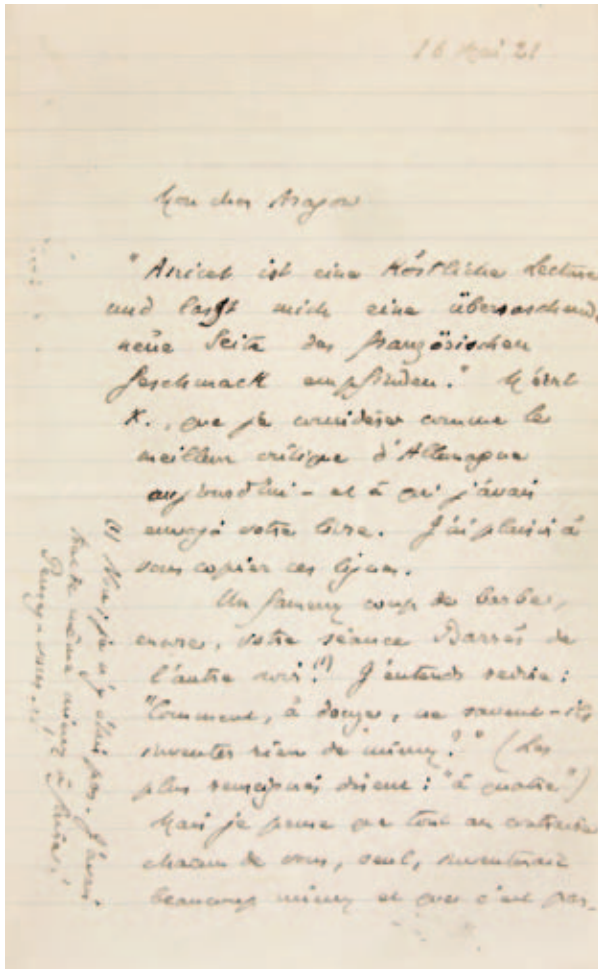 16 Mai 21
Mon cher Aragon
"Anicet ist eine Köstliche Lecture
und lasst mich eine überraschende
neue Seite des französischen
Geschmack empfinden." M'écrit
K., que je considère comme le
meilleur critique d'Allemagne
aujourd'hui - et à qui j'avais
envoyé votre livre. J'ai plaisir à
vous copier ces lignes.
Un fameux coup de barbe,
encore, votre séance Barrès de
l'autre soir! (1) J'entends redire :
"Comment, à douze, ne savent-ils
inventer rien de mieux?" (Les
plus renseignés disent : "à quatre")
Mais je pense que tout au contraire
chacun de vous, seul, inventerait
beaucoup mieux et que c'est par-
(1) Non, je n'y étais pas. J'avais
mieux à faire!
Pensez-vous